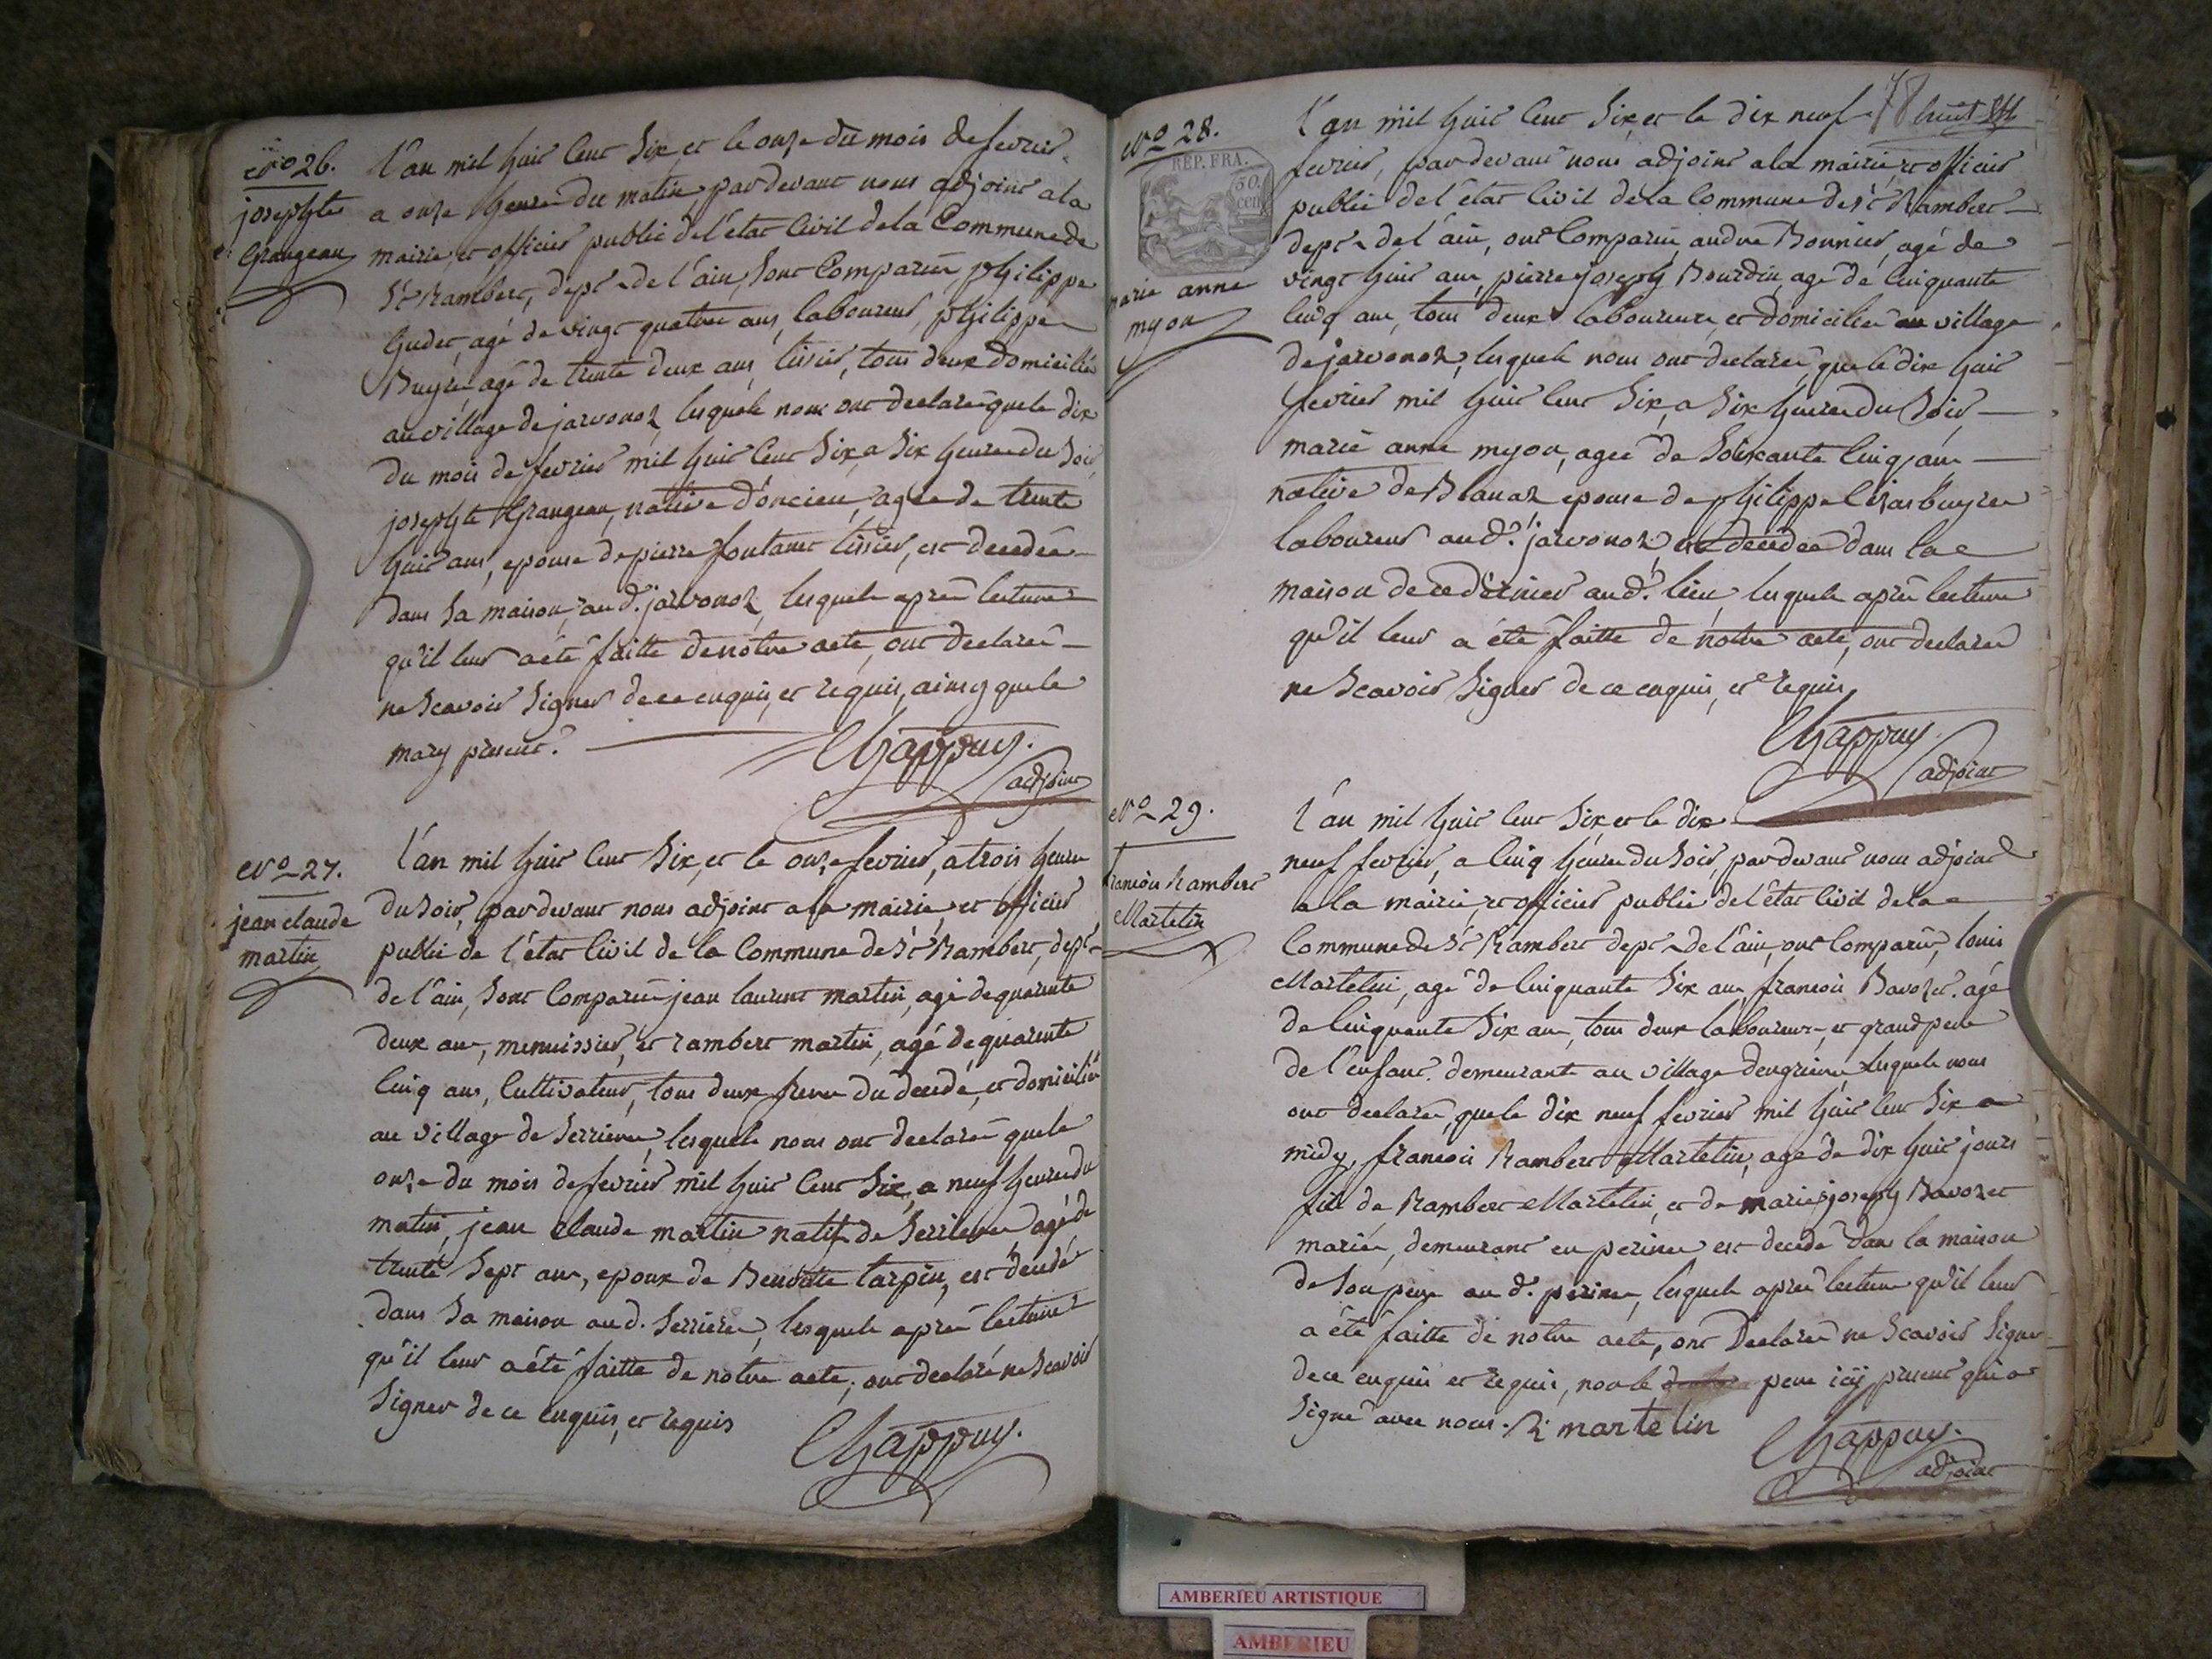 N.o 26.
josephte
Grangean
L'an mil huit Cent Six, et le onze du mois de fevrier
a onze heures du matin, par devant nous adjoint a la
mairie, et officier public de l'état Civil de la Commune de
S.t Rambert, dep.t de l'ain, sont Comparus philippe
agé de vingt quatre ans, laboureur, philippe
Buyre agé de trente deux ans, tissier, tous deux domiciliés
au village de javornoz, lesquels nous ont declarés que le dix
du mois de fevrier mil huit Cent Six, a Six heures du Soir,
josephte Grangean, native d'oncieu, agée de trente
huit ans, epouse de pierre fontanet tissier, est decedée
dans Sa maison, au d. javornoz, lesquels après lecture
qu'il leur a été faitte de notre acte, ont declarés
ne Scavoir Signer de ce enquis, et requis, ainsy que le
mary present.
Chappuy.
adjoint
N.o 27.
jean claude
martin
L'an mil huit Cent Six, et le onze fevrier, a trois heures
du Soir, par devant nous adjoint a la mairie, et officier
public de l'état Civil de la Commune de S.t Rambert, dep.t
de l'ain, Sont Comparus jean laurent martin, agé de quarente
deux ans, menuissier, et rambert martin, agé de quarente
Cinq ans, Cultivateur, tous deux freres du decedé, et domiciliés
au village de Serrieres, lesquels nous ont declarés que le
onze du mois de fevrier mil huit Cent Six, a neuf heures du
matin, jean Claude martin natif de Serrieres agé de
trente Sept ans, epoux de Benoitte tarpin, est decedé
dans Sa maison au d. Serrieres, lesquels après lecture
qu'il leur a été faitte de notre acte, ont declaré ne Scavoir
Signer de ce enquis, et requis
Chappuy.
78
N.o 28.
REP. FRA.
50.
cen
marie anne
myon
L'an mil huit Cent Six, et le dix neuf
fevrier, par devant nous adjoint a la mairie, et officier
public de l'état Civil de la Commune de S.t Rambert
dep.t de l'ain, ont Comparus andre Bonnier, agé de
vingt huit ans, pierre joseph Bourdin, agé de Cinquante
Cinq ans, tous deux laboureurs, et domiciliés au village
de javornoz, lesquels nous ont declarés que le dix huit
fevrier mil huit Cent Six, a Six heures du Soir
marie anne myon, agée de Soixante Cinq ans
native de Blanaz epouse de philippe
laboureur au d. javornoz, est decedée dans la
maison de ce dernier au d. lieu, lesquels après lecture
qu'il leur a été faitte de notre acte, ont declarés
ne Scavoir Signer de ce enquis, et requis,
Chappuy.
adjoint
N.o 29.
francois Rambert
Martelin
L'an mil huit Cent Six, et le dix
neuf fevrier, a Cinq heures du Soir, par devant nous adjoint
a la mairie, et officier public de l'état Civil de la
Commune de S.t Rambert dep.t de l'ain, ont Comparus, louis
Martelin, agé de Cinquante Six ans, francois Bavozet, agé
de Cinquante Six ans, tous deux laboureurs, et grand pere
de l'enfant, demeurants au village lesquels nous
ont declarés, que le dix neuf fevrier mil huit Cent Six a
midy, francois Rambert Martelin, agé de dix huit jours
fils de Rambert Martelin, et de marie joseph Bavozet
mariés, demeurant en perines est decedé dans la maison
de Son pere au d. perines, lesquels après lecture qu'il leur
a été faitte de notre acte, ont Declarés ne Scavoir Signer
de ce enquis et requis, non le pere icy present qui a
Signé avec nous. R martelin
Chappuy.
adjoint
AMBERIEU ARTISTIQUE
AMBERIEU